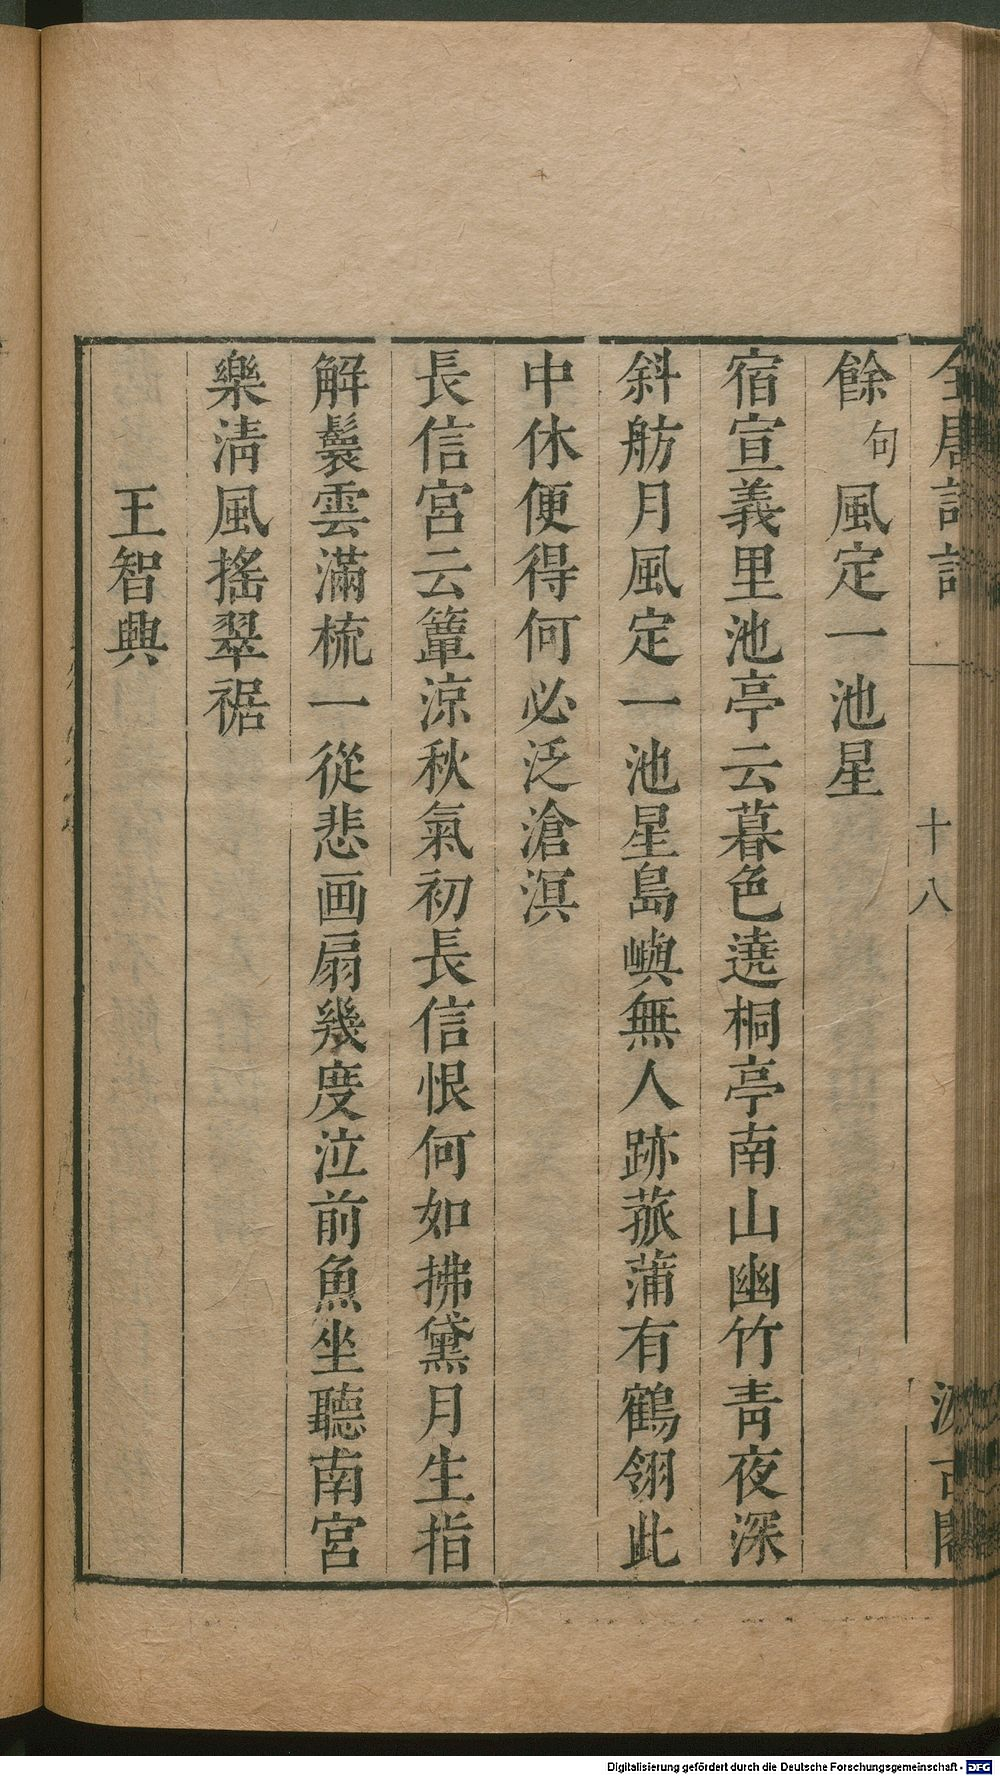 全唐詩話 十八 汲古閣
餘句 風定一池星
宿宣義里池亭云暮色遶桐亭南山幽竹青夜深
斜舫月風定一池星島嶼無人跡菰蒲有鶴翎此
中休便得何必泛滄溟
長信宮云簟涼秋氣初長信恨何如拂黛月生指
解鬟雲滿梳一從悲画扇幾度泣前魚坐聽南宮
樂清風搖翠裾
王智興
Digitalisierung gefördert durch die Deutsche Forschungsgemeinschaft - DFG